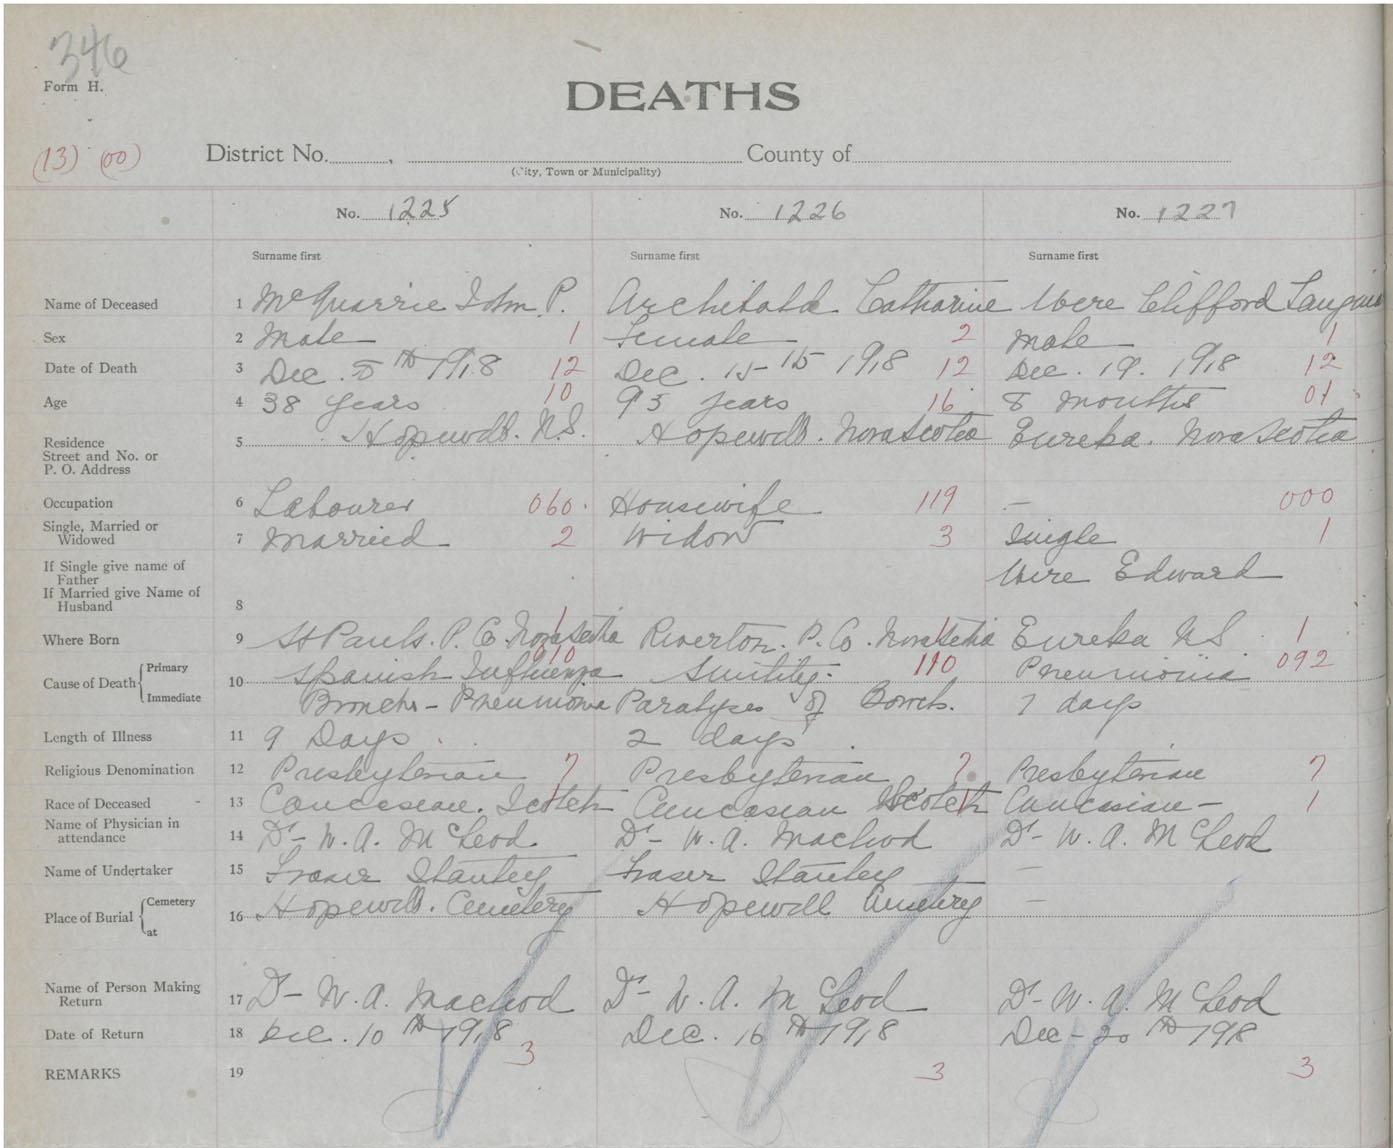 346
Form H.
DEATHS
(13) (00)
District No. , County of
(City, Town or Municipality)
No. 1225 No. 1226 No. 1227
Surname first Surname first Surname first
Name of Deceased 1 McQuarrie John P. Archibald Catharine Were Clifford
Sex 2 Male 1 Female 2 Male 1
Date of Death 3 Dec. 5th 1918 12 Dec. 15th 1918 12 Dec. 19. 1918 12
Age 4 38 years 10 93 years 16 8 months 01
Residence
Street and No. or
P. O. Address
5 Hopewell. N.S. Hopewell. Nova Scotia Eureka. Nova Scotia
Occupation 6 Labourer 060. Housewife 119 — 000
Single, Married or
Widowed
7 Married 2 Widow 3 Single 1
If Single give name of
Father
If Married give Name of
Husband
8 Were Edward
Where Born 9 St Pauls. P.O. Nova Scotia 1 Riverton. P.O. Nova Scotia 1 Eureka N.S. 1
Cause of Death Primary Immediate
10 Spanish Influenza 010 110 Pneumonia 092
Broncho-Pneumonia Paralyses of Bowels. 7 days
Length of Illness 11 9 Days 2 days
Religious Denomination 12 Presbyterian 7 Presbyterian 7 Presbyterian 7
Race of Deceased 13 Caucasean. Scotch 1 Caucasian Scotch 1 Caucasian — 1
Name of Physician in
attendance
14 Dr- W. A. McLeod Dr- W. A. Macleod Dr- W. A. McLeod
Name of Undertaker 15 Fraser Stanley Fraser Stanley —
Place of Burial Cemetery at
16 Hopewell. Cemetery Hopewell Cemetry —
Name of Person Making
Return
17 Dr- W. A. Macleod Dr- W. A. McLeod Dr- W. A. McLeod
Date of Return 18 Dec. 10th 1918 Dec. 16th 1918 Dec- 20th 1918
3
REMARKS 19 3 3